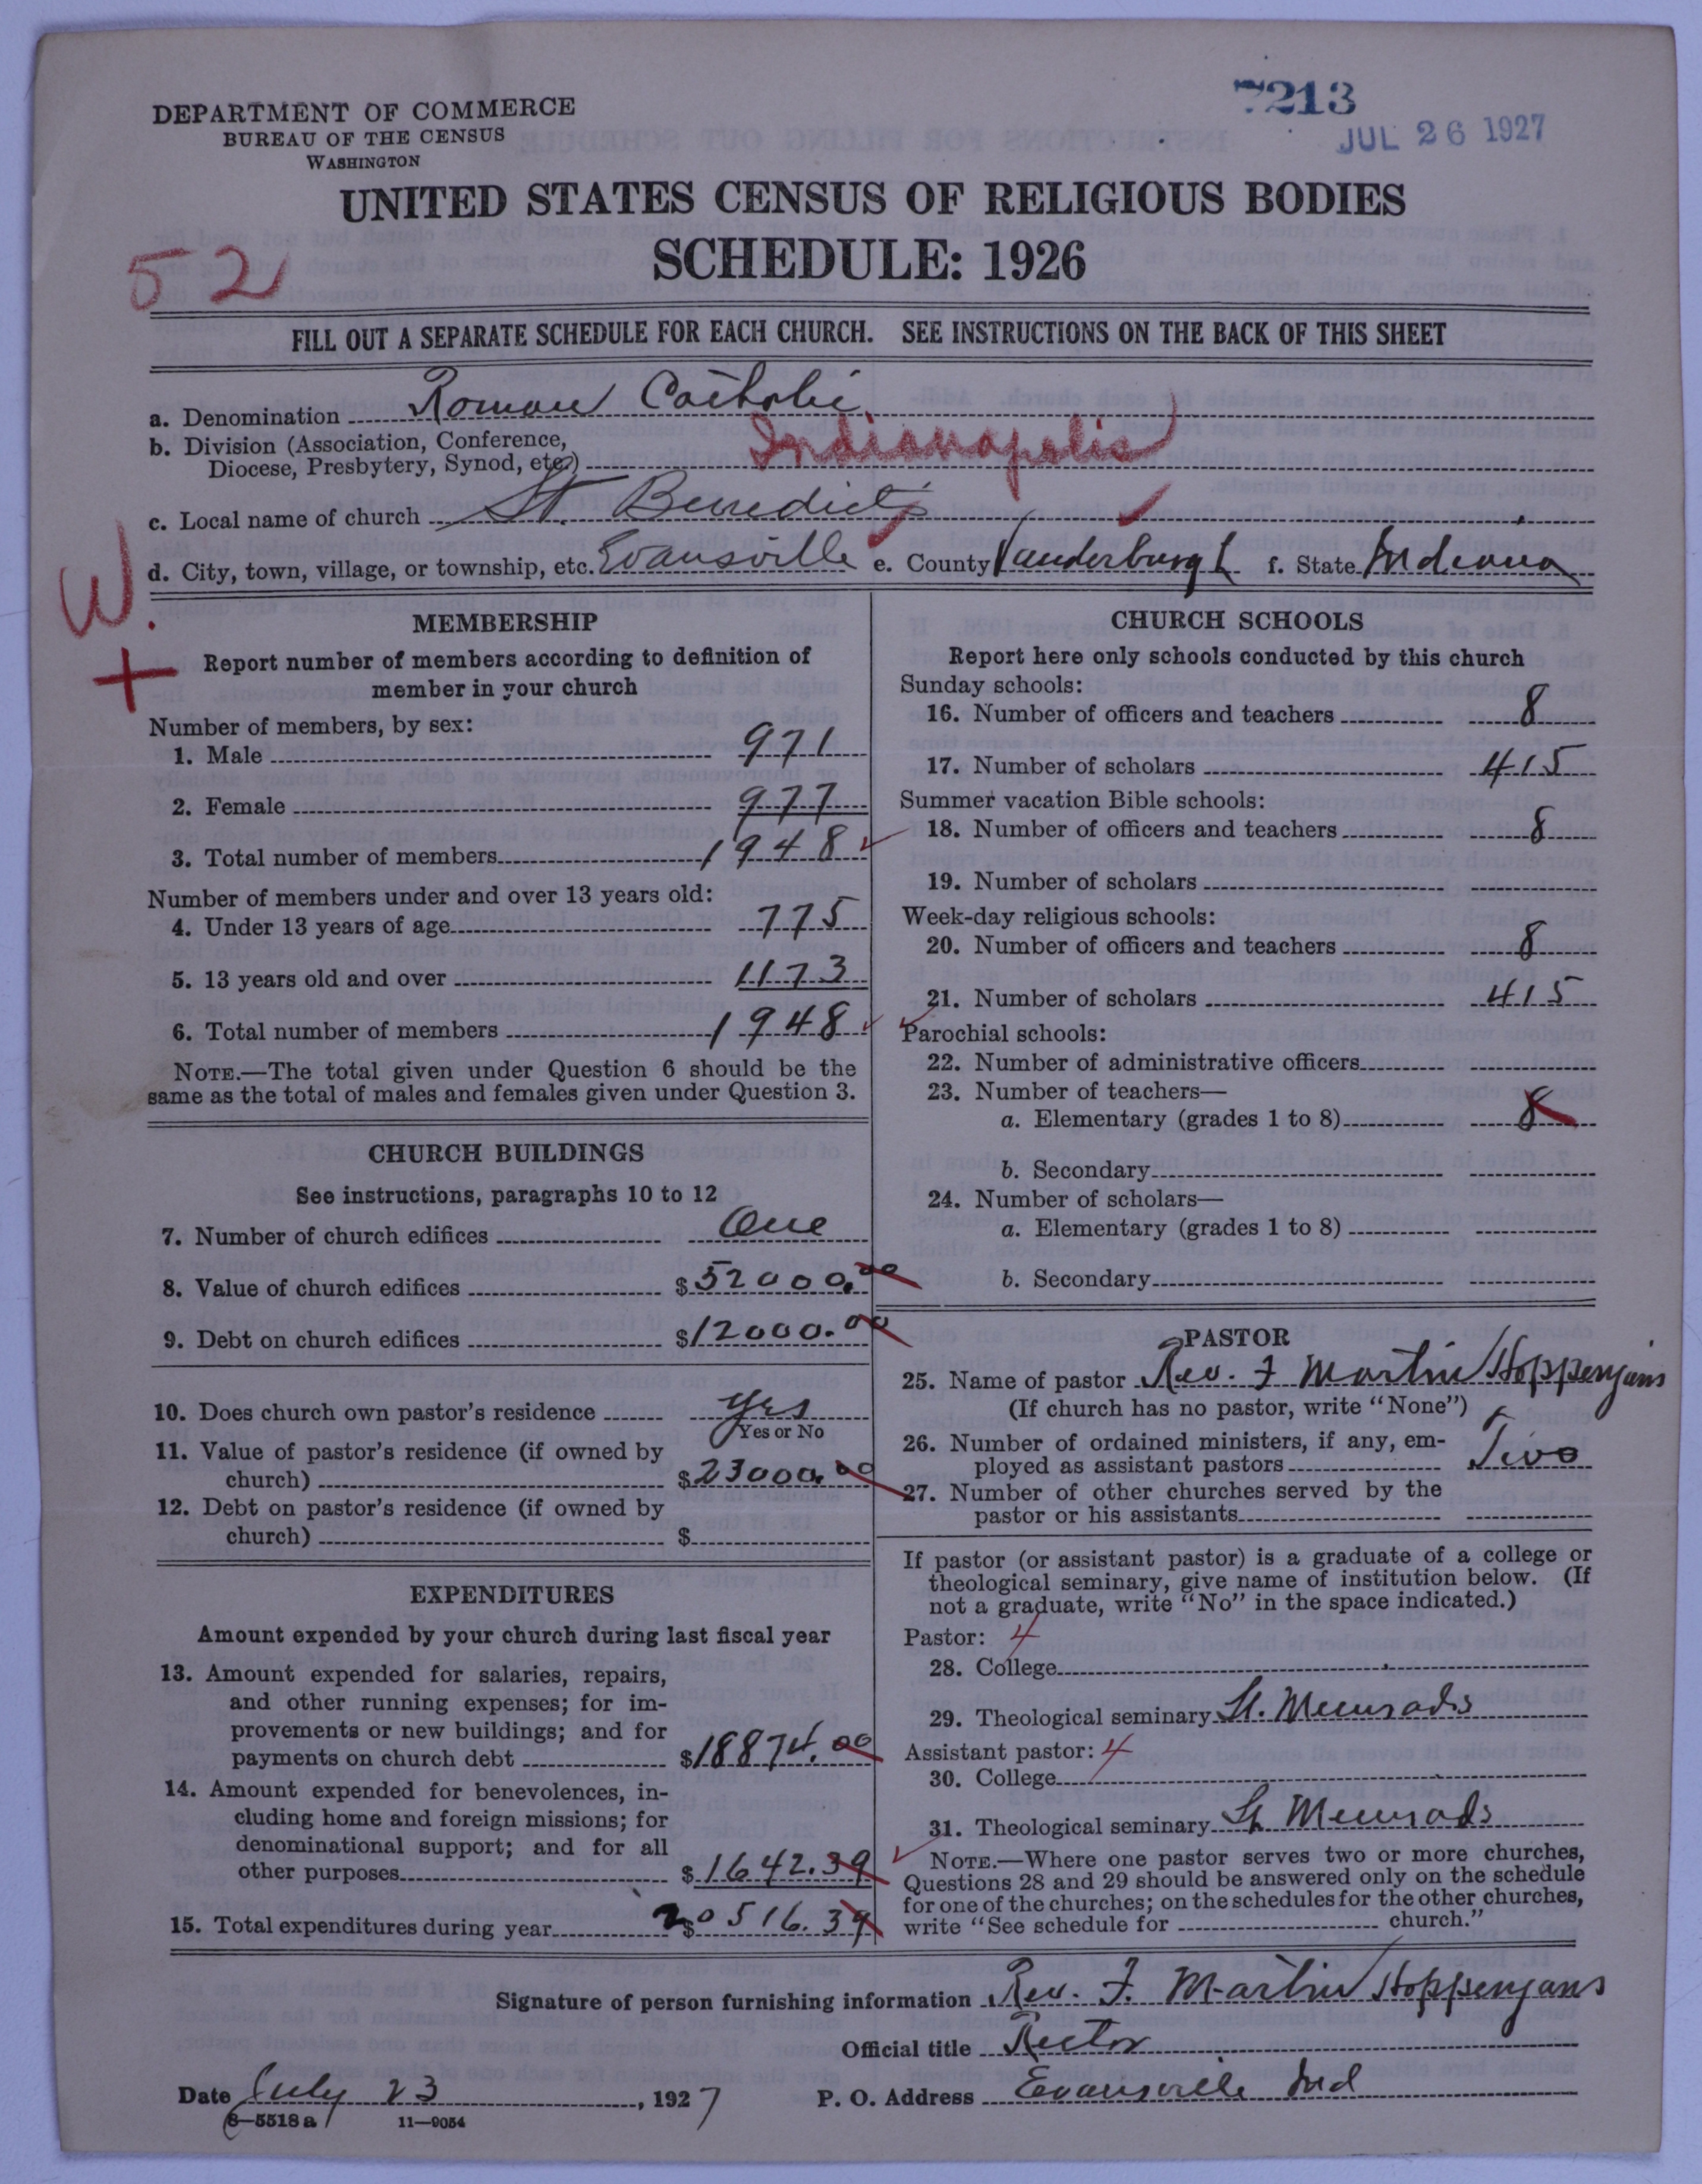 7213
JUL 26 1927
DEPARTMENT OF COMMERCE
BUREAU OF THE CENSUS
WASHINGTON
UNITED STATES CENSUS OF RELIGIOUS BODIES
SCHEDULE: 1926
52
FILL OUT A SEPARATE SCHEDULE FOR EACH CHURCH. SEE INSTRUCTIONS ON THE BACK OF THIS SHEET
a. Denomination Roman Catholic
b. Division (Association, Conference,
Diocese, Presbytery, Synod, etc.) Indianapolis
c. Local name of church St. Benedict's
d. City, town, village, or township, etc. Evansville e. County Vanderburgh f. State Indiana
W.
+
MEMBERSHIP
Report number of members according to definition of
member in your church
Number of members, by sex:
1. Male 971
2. Female 977
3. Total number of members 1948
Number of members under and over 13 years old:
4. Under 13 years of age 775
5. 13 years old and over 1173
6. Total number of members 1948
NOTE.—The total given under Question 6 should be the
same as the total of males and females given under Question 3.
CHURCH BUILDINGS
See instructions, paragraphs 10 to 12
7. Number of church edifices One
8. Value of church edifices $52000.00
9. Debt on church edifices $12000.00
10. Does church own pastor's residence Yes
Yes or No
11. Value of pastor's residence (if owned by
church) $23000.00
12. Debt on pastor's residence (if owned by
church) $
EXPENDITURES
Amount expended by your church during last fiscal year
13. Amount expended for salaries, repairs,
and other running expenses; for im-
provements or new buildings; and for
payments on church debt $18874.00
14. Amount expended for benevolences, in-
cluding home and foreign missions; for
denominational support; and for all
other purposes $1642.39
15. Total expenditures during year $20516.39
CHURCH SCHOOLS
Report here only schools conducted by this church
Sunday schools:
16. Number of officers and teachers 8
17. Number of scholars 415
Summer vacation Bible schools:
18. Number of officers and teachers 8
19. Number of scholars
Week-day religious schools:
20. Number of officers and teachers 8
21. Number of scholars 415
Parochial schools:
22. Number of administrative officers
23. Number of teachers—
a. Elementary (grades 1 to 8) 8
b. Secondary
24. Number of scholars—
a. Elementary (grades 1 to 8)
b. Secondary
PASTOR
25. Name of pastor Rev. F Martin Hoppenjans
(If church has no pastor, write "None")
26. Number of ordained ministers, if any, em-
ployed as assistant pastors Two
27. Number of other churches served by the
pastor or his assistants
If pastor (or assistant pastor) is a graduate of a college or
theological seminary, give name of institution below. (If
not a graduate, write "No" in the space indicated.)
Pastor: 4
28. College
29. Theological seminary St. Meinrads
Assistant pastor: 4
30. College
31. Theological seminary St Meinrads
NOTE.—Where one pastor serves two or more churches,
Questions 28 and 29 should be answered only on the schedule
for one of the churches; on the schedules for the other churches,
write "See schedule for church."
Signature of person furnishing information Rev. F. Martin Hoppenjans
Official title Rector
Date July 23, 1927 P. O. Address Evansville Ind
8—5518 a 11—9054